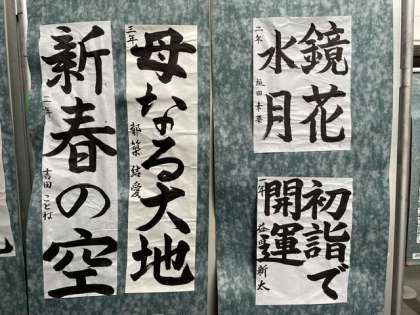 新春の空
二年
吉田ことね
母なる大地
三年
都築結愛
鏡花
水月
二年
初詣で
開運
一年
新太